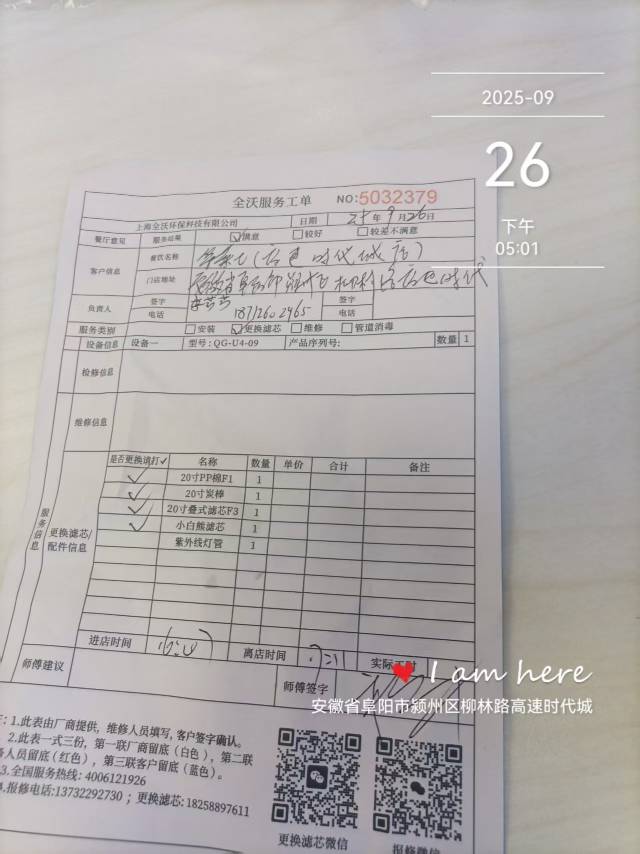 2025-09
26
下午
05:01
全沃服务工单 NO:5032379
上海全沃环保科技有限公司 日期 25年9月26日
餐厅意见 服务结果 ☑满意 □较好 □较差不满意
客户信息 餐饮名称
门店地址
负责人 签字 签字
电话 18712602465 电话
服务类别 □安装 ☑更换滤芯 □维修 □管道消毒
设备信息 设备一 型号:QG-U4-09 产品序列号: 数量 1
检修信息
维修信息
服务信息
更换滤芯/配件信息
是否更换请打✓ 名称 数量 单价 合计 备注
✓ 20寸PP棉F1 1
✓ 20寸炭棒 1
✓ 20寸叠式滤芯F3 1
✓ 小白熊滤芯 1
紫外线灯管 1
进店时间 离店时间 实际工时
师傅建议 师傅签字
I am here
安徽省阜阳市颍州区柳林路高速时代城
1.此表由厂商提供，维修人员填写，客户签字确认。
2.此表一式三份，第一联厂商留底（白色），第二联
人员留底（红色），第三联客户留底（蓝色）。
3.全国服务热线: 4006121926
报修电话:13732292730 ; 更换滤芯:18258897611
更换滤芯微信 报修微信